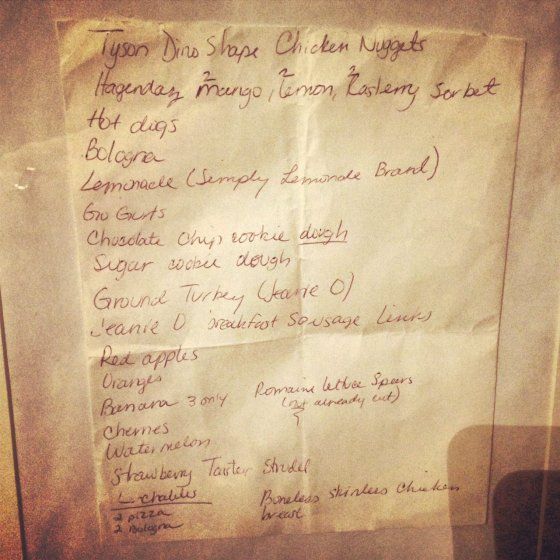 Tyson Dino Shape Chicken Nuggets
Hagendaz 2 mango, 2 Lemon, 2 Rasberry Sorbet
Hot dogs
Bologna
Lemonade (Semply Lemonade Brand)
Go Gurts
Chocolate Chip cookie dough
Sugar cookie dough
Ground Turkey (Jeanie O)
Jeanie O breakfast Sausage Links
Red apples
Oranges
Banana 3 only
Romaine lettuce Spears
(not already cut)
Cherries
Watermelon
Strawberry Toaster Strudel
Boneless skinless chicken
breast
2 pizza
2 Bologna